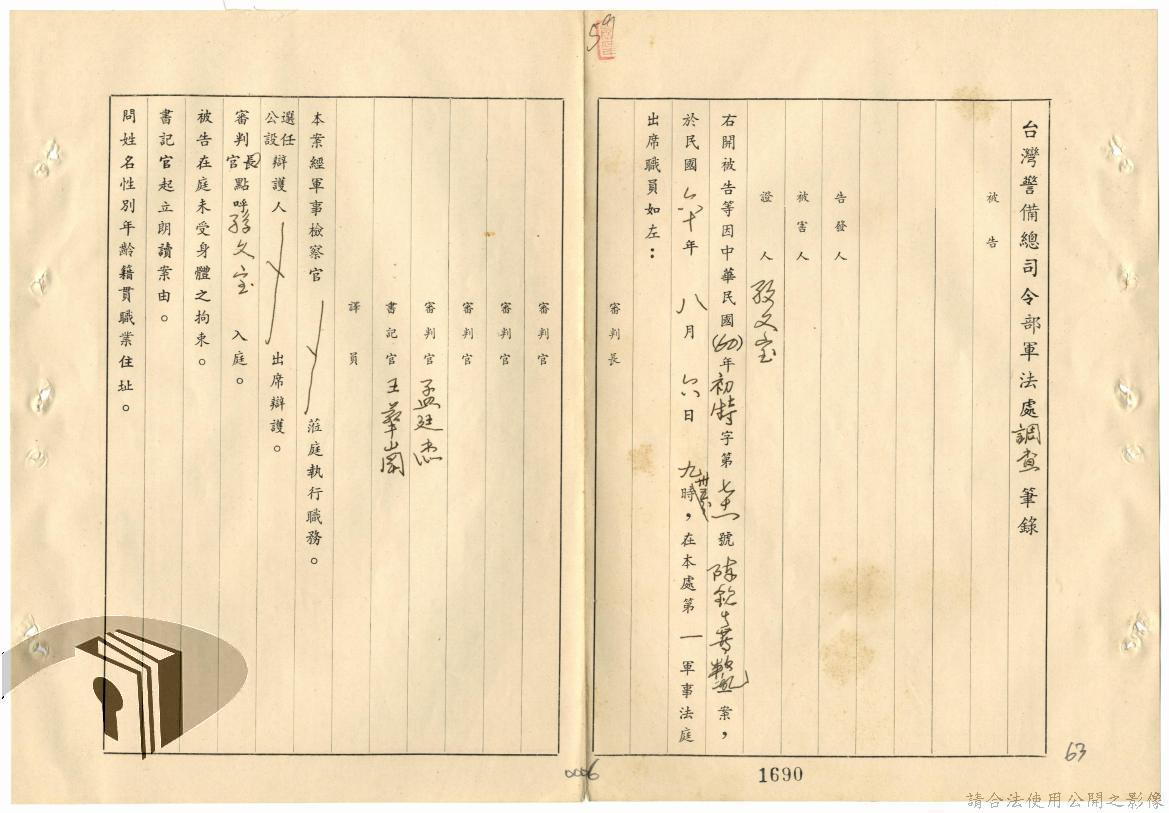 59
台灣警備總司令部軍法處調查筆錄
被告
告發人
被害人
證人 孫文寶
右開被告等因中華民國(60)年初特字第號陳銘等案，
於民國六十年八月六日九時卅五分，在本處第一軍事法庭
出席職員如左：
審判長
審判官
審判官
審判官
審判官 孟廷杰
書記官 王華崗
譯員
本案經軍事檢察官 蒞庭執行職務。
選任
公設辯護人 出席辯護。
審判長
官點呼孫文寶入庭。
被告在庭未受身體之拘束。
書記官起立朗讀案由。
問姓名性別年齡籍貫職業住址。
63
0006
1690
請合法使用公開之影像